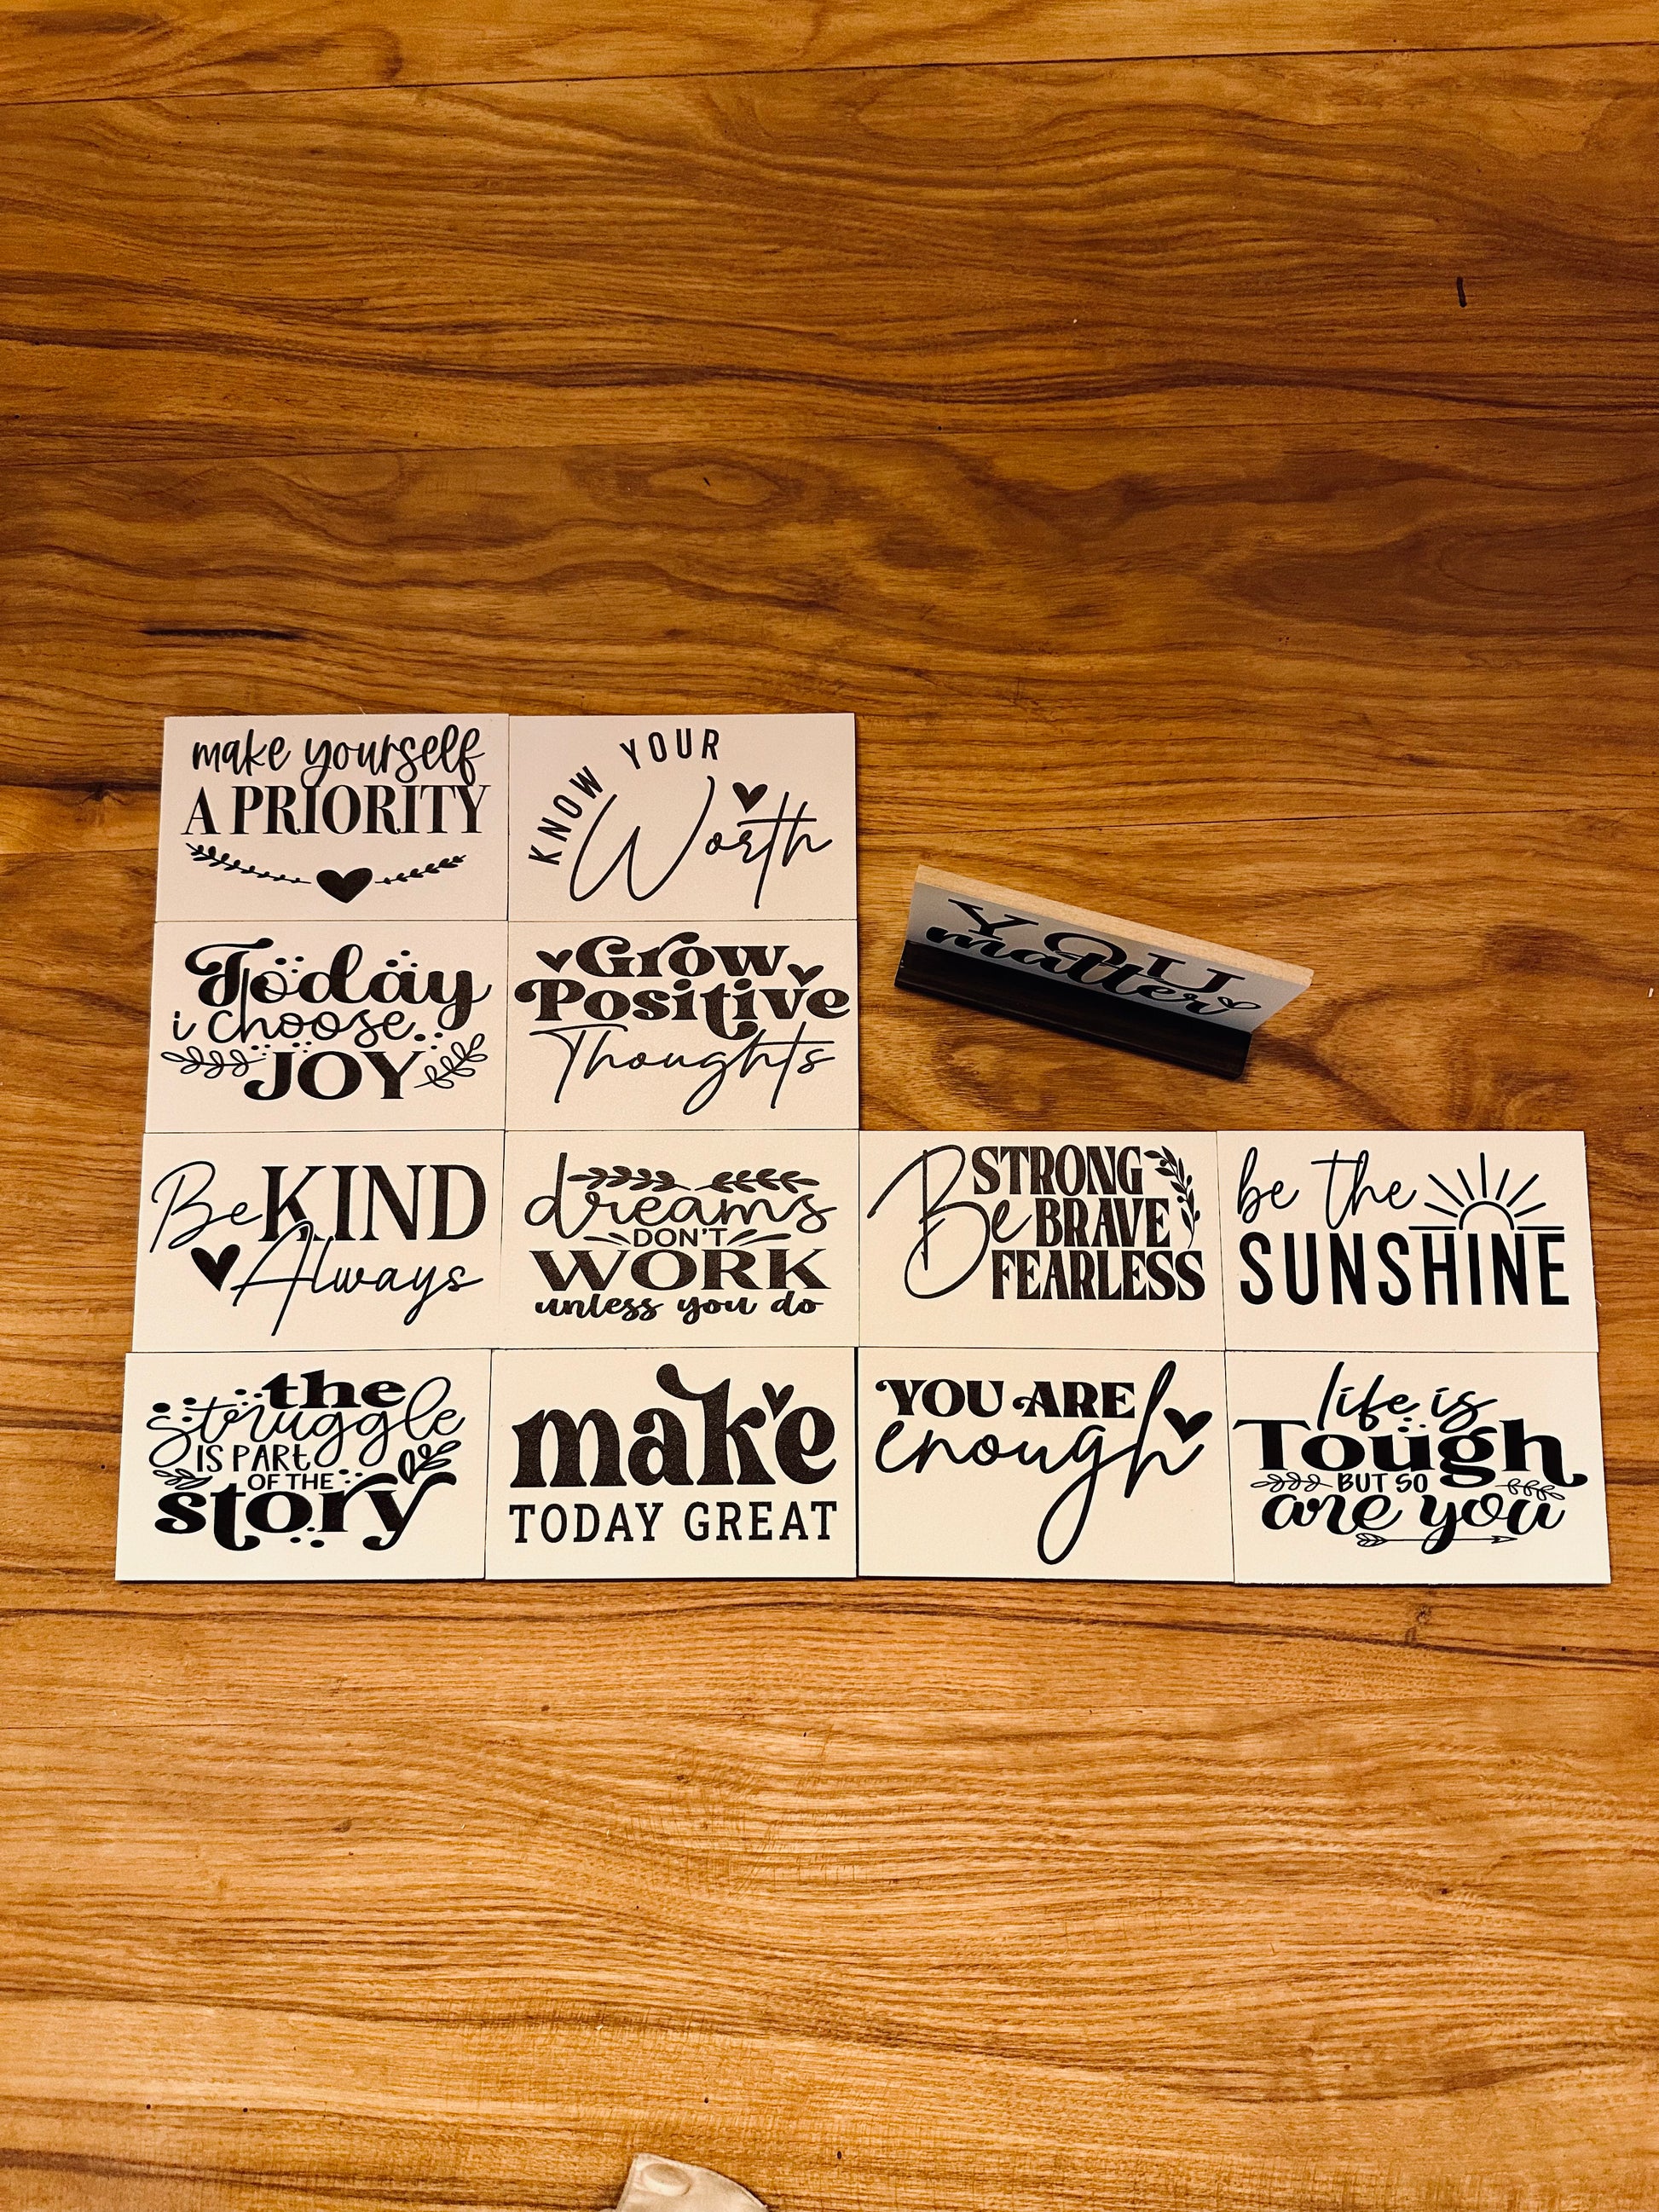 make yourself
A PRIORITY
KNOW YOUR
Worth
Today
i choose
JOY
Grow
Positive
Thoughts
YOU
matter
Be KIND
Always
dreams
DON'T
WORK
unless you do
Be STRONG
Be BRAVE
FEARLESS
be the
SUNSHINE
the
struggle
IS PART
OF THE
story
make
TODAY GREAT
YOU ARE
enough
life is
Tough
BUT SO
are you